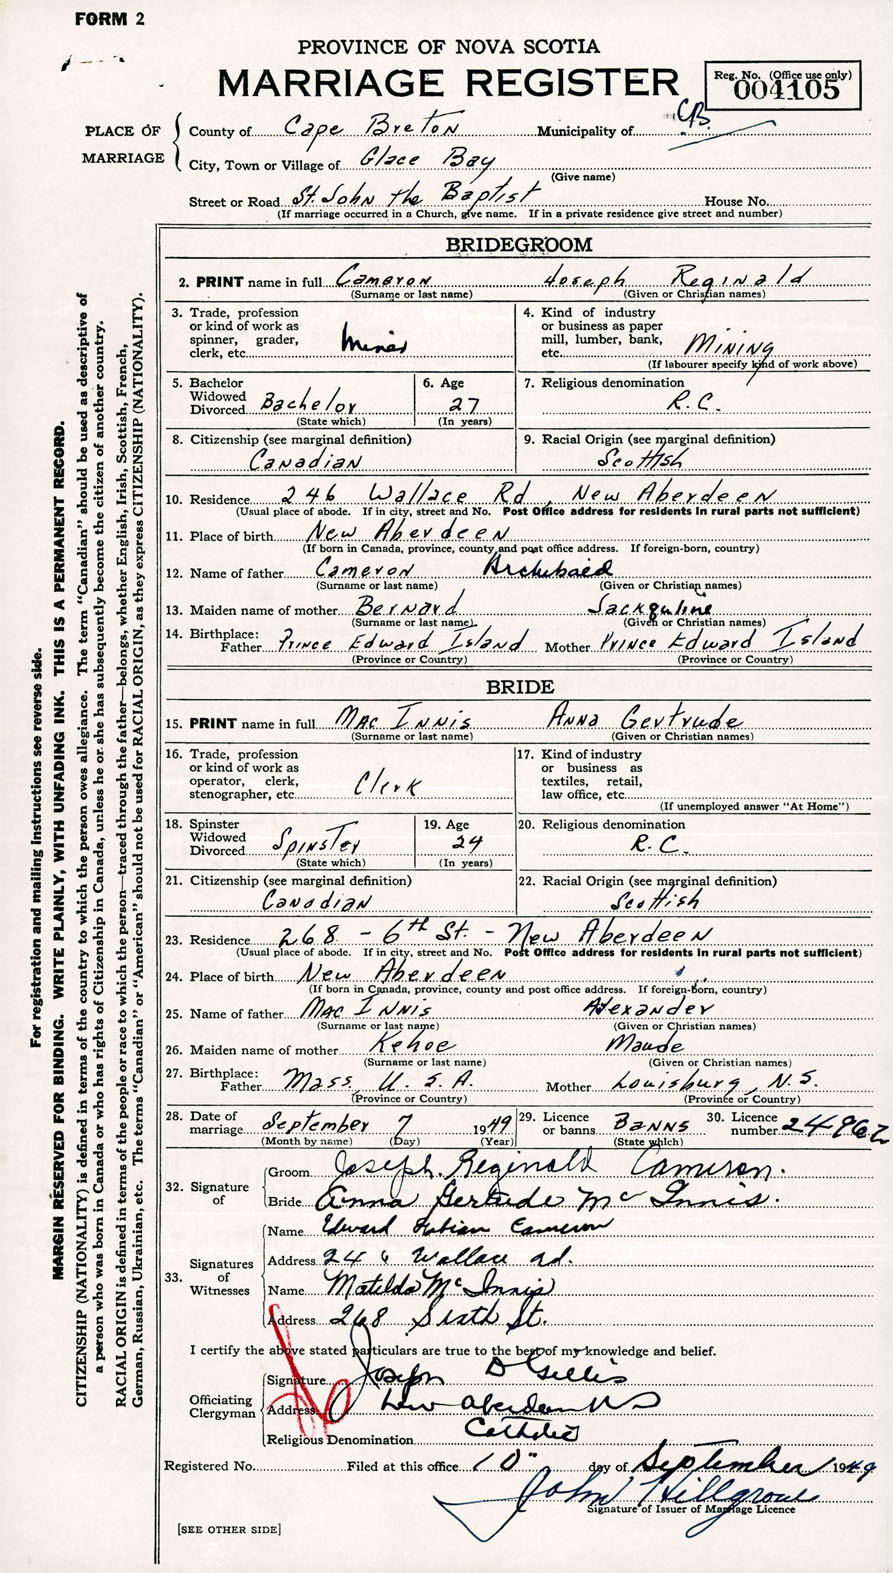 FORM 2
PROVINCE OF NOVA SCOTIA
MARRIAGE REGISTER
Reg. No. (Office use only)
004105
PLACE OF MARRIAGE
County of Cape Breton Municipality of C.B.
City, Town or Village of Glace Bay
(Give name)
Street or Road St. John the Baptist House No.
(If marriage occurred in a Church, give name. If in a private residence give street and number)
BRIDEGROOM
2. PRINT name in full Cameron Joseph Reginald
(Surname or last name) (Given or Christian names)
3. Trade, profession or kind of work as spinner, grader, clerk, etc. Miner
4. Kind of industry or business as paper mill, lumber, bank, etc. Mining
(If labourer specify kind of work above)
5. Bachelor Widowed Divorced Bachelor
(State which)
6. Age 27
(In years)
7. Religious denomination R.C.
8. Citizenship (see marginal definition) Canadian
9. Racial Origin (see marginal definition) Scottish
10. Residence 246 Wallace Rd, New Aberdeen
(Usual place of abode. If in city, street and No. Post Office address for residents in rural parts not sufficient)
11. Place of birth New Aberdeen
(If born in Canada, province, county and post office address. If foreign-born, country)
12. Name of father Cameron Archibald
(Surname or last name) (Given or Christian names)
13. Maiden name of mother Bernard Jackquline
(Surname or last name) (Given or Christian names)
14. Birthplace: Father Prince Edward Island Mother Prince Edward Island
(Province or Country) (Province or Country)
BRIDE
15. PRINT name in full Mac Innis Anna Gertrude
(Surname or last name) (Given or Christian names)
16. Trade, profession or kind of work as operator, clerk, stenographer, etc. Clerk
17. Kind of industry or business as textiles, retail, law office, etc.
(If unemployed answer "At Home")
18. Spinster Widowed Divorced Spinster
(State which)
19. Age 24
(In years)
20. Religious denomination R.C.
21. Citizenship (see marginal definition) Canadian
22. Racial Origin (see marginal definition) Scottish
23. Residence 268 - 6th St. - New Aberdeen
(Usual place of abode. If in city, street and No. Post Office address for residents in rural parts not sufficient)
24. Place of birth New Aberdeen
(If born in Canada, province, county and post office address. If foreign-born, country)
25. Name of father Mac Innis Alexander
(Surname or last name) (Given or Christian names)
26. Maiden name of mother Kehoe Maude
(Surname or last name) (Given or Christian names)
27. Birthplace: Father Mass. U.S.A. Mother Louisburg, N.S.
(Province or Country) (Province or Country)
28. Date of marriage September 7 1949
(Month by name) (Day) (Year)
29. Licence or banns Banns
(State which)
30. Licence number 24962
32. Signature of
Groom Joseph Reginald Cameron.
Bride Anna Gertrude McInnis.
33. Signatures of Witnesses
Name Edward Fabian Cameron
Address 246 Wallace Rd.
Name Matilda McInnis
Address 268 Sixth St.
I certify the above stated particulars are true to the best of my knowledge and belief.
Officiating Clergyman
Signature Joseph D Gillis
Address New Aberdeen NS
Religious Denomination Catholic
Registered No. Filed at this office 10" day of September 1949
John Hillgrove
Signature of Issuer of Marriage Licence
[SEE OTHER SIDE]
For registration and mailing instructions see reverse side.
MARGIN RESERVED FOR BINDING. WRITE PLAINLY, WITH UNFADING INK. THIS IS A PERMANENT RECORD.
CITIZENSHIP (NATIONALITY) is defined in terms of the country to which the person owes allegiance. The term "Canadian" should be used as descriptive of
a person who was born in Canada or who has rights of Citizenship in Canada, unless he or she has subsequently become the citizen of another country.
RACIAL ORIGIN is defined in terms of the people or race to which the person—traced through the father—belongs, whether English, Irish, Scottish, French,
German, Russian, Ukrainian, etc. The terms "Canadian" or "American" should not be used for RACIAL ORIGIN, as they express CITIZENSHIP (NATIONALITY).